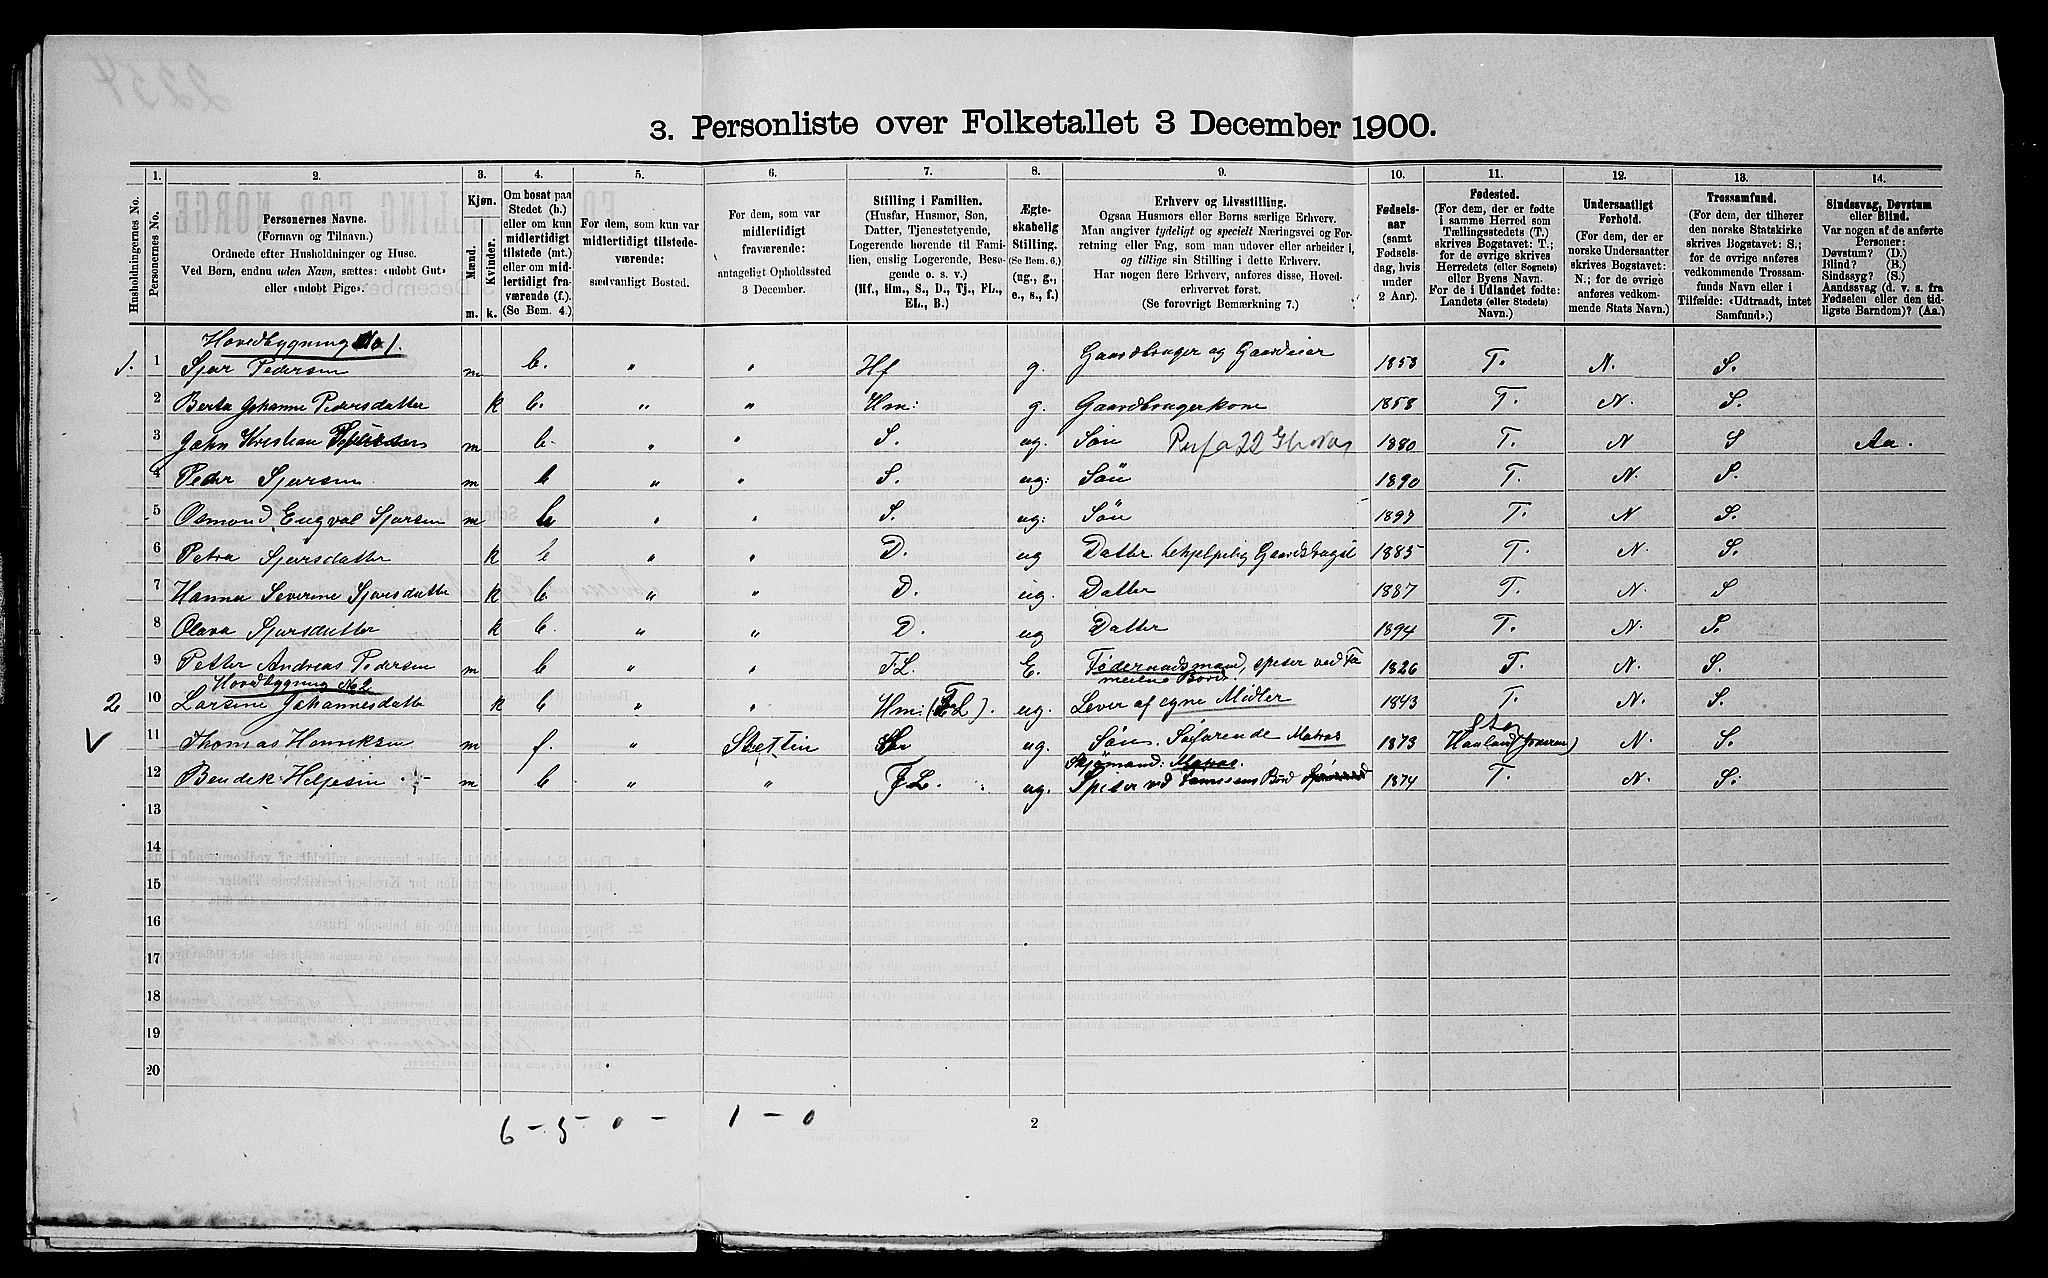 3. Personliste over Folketallet 3 December 1900.
Husholdningernes No.
1.
Personernes No.
2.
Personernes Navne.
(Fornavn og Tilnavn.)
Ordnede efter Husholdninger og Huse.
Ved Børn, endnu uden Navn, sættes: «udobt Gut»
eller «udobt Pige».
3.
Kjøn.
Mænd.
Kvinder.
m. k.
4.
Om bosat paa
Stedet (b.)
eller om kun
midlertidigt
tilstede (mt.)
eller om mid-
lertidigt fra-
værende (f.).
(Se Bem. 4.)
5.
For dem, som kun var
midlertidigt tilstede-
værende:
sædvanligt Bosted.
6.
For dem, som var
midlertidigt
fraværende:
antageligt Opholdssted
3 December.
7.
Stilling i Familien.
(Husfar, Husmor, Søn,
Datter, Tjenestetyende,
Logerende hørende til Fami-
lien, enslig Logerende, Besø-
gende o. s. v.)
(Hf., Hm., S., D., Tj., FL.,
EL., B.)
8.
Ægte-
skabelig
Stilling.
(Se Bem. 6.)
(ug., g.,
e., s., f.)
9.
Erhverv og Livsstilling.
Ogsaa Husmors eller Børns særlige Erhverv.
Man angiver tydeligt og specielt Næringsvei og For-
retning eller Fag, som man udover eller arbeider i,
og tillige sin Stilling i dette Erhverv.
Har nogen flere Erhverv, anføres disse, Hoved-
erhvervet først.
(Se forøvrigt Bemærkning 7.)
10.
Fødsels-
aar
(samt
Fødsels-
dag, hvis
under
2 Aar).
11.
Fødested.
(For dem, der er fødte
i samme Herred som
Tællingsstedets (T.)
skrives Bogstavet: T.;
for de øvrige skrives
Herredets (eller Sognets)
eller Byens Navn.
For de i Udlandet fødte:
Landets (eller Stedets)
Navn.)
12.
Undersaatligt
Forhold.
(For norske Undersaatter
skrives Bogstavet:
N.; for de øvrige
anføres vedkom-
mende Stats Navn.)
13.
Trossamfund.
(For dem, der tilhører
den norske Statskirke
skrives Bogstavet: S.;
for de øvrige anføres
vedkommende Trossam-
funds Navn eller i
Tilfælde: «Udtraadt, intet
Samfund».)
14.
Sindssvag, Døvstum
eller Blind.
Var nogen af de anførte
Personer:
Døvstum? (D.)
Blind? (B.)
Sindssyg? (S.)
Aandssvag (d. v. s. fra
Fødselen eller den tid-
ligste Barndom)? (Aa.)
Hovedbygning No 1.
1. 1 Sjur Pedersen m b. " " Hf g. Gaardbruger og Gaardeier 1853 T. N. S.
2 Berta Johanne Pedersdatter k b. " " Hm: g. Gaardbrugerkone 1858 T. N. S.
3 John Kristian m b. " " S. ug. Søn 1880 T. N S Aa.
4 Peder Sjursen m b " " S. ug: Søn 1890 T. N. S.
5 Osmond Engval Sjursen m b " " S. ug: Søn 1897 T. N S.
6 Petra Sjursdatter k b " " D. ug Datter behjelpelig Gaardsbruget 1885 T. N. S.
7 Hanna Severine Sjursdatter k b " " D. ug. Datter 1887 T. N. S
8 Olava Sjursdatter k b. " " D. ug Datter 1894 T. N. S.
9 Petter Andreas Pedersen m b " " FL. E. Føderaadsmand, spiser ved Fa 1826 T. N. S.
meilens Bord.
Hovedbygning No 2
2 10 Larsine Johannesdatte k b " " Hm: (FL). ug. Lever af egne Midler 1843 T. N. S.
11 Thomas Henriksen m f. " Stettin ug. Søn. Søfarende Matros 1873 Haaland (Jæderen) N. S.
Sjømand: Matros.
12 Bendik Heljesen m b " " FL. ug. Spiser ved Familiens Bord 1874 T. N. S.
13
14
15
16
17
18
19
20
6 - 5 - 0 - 1 - 0
2